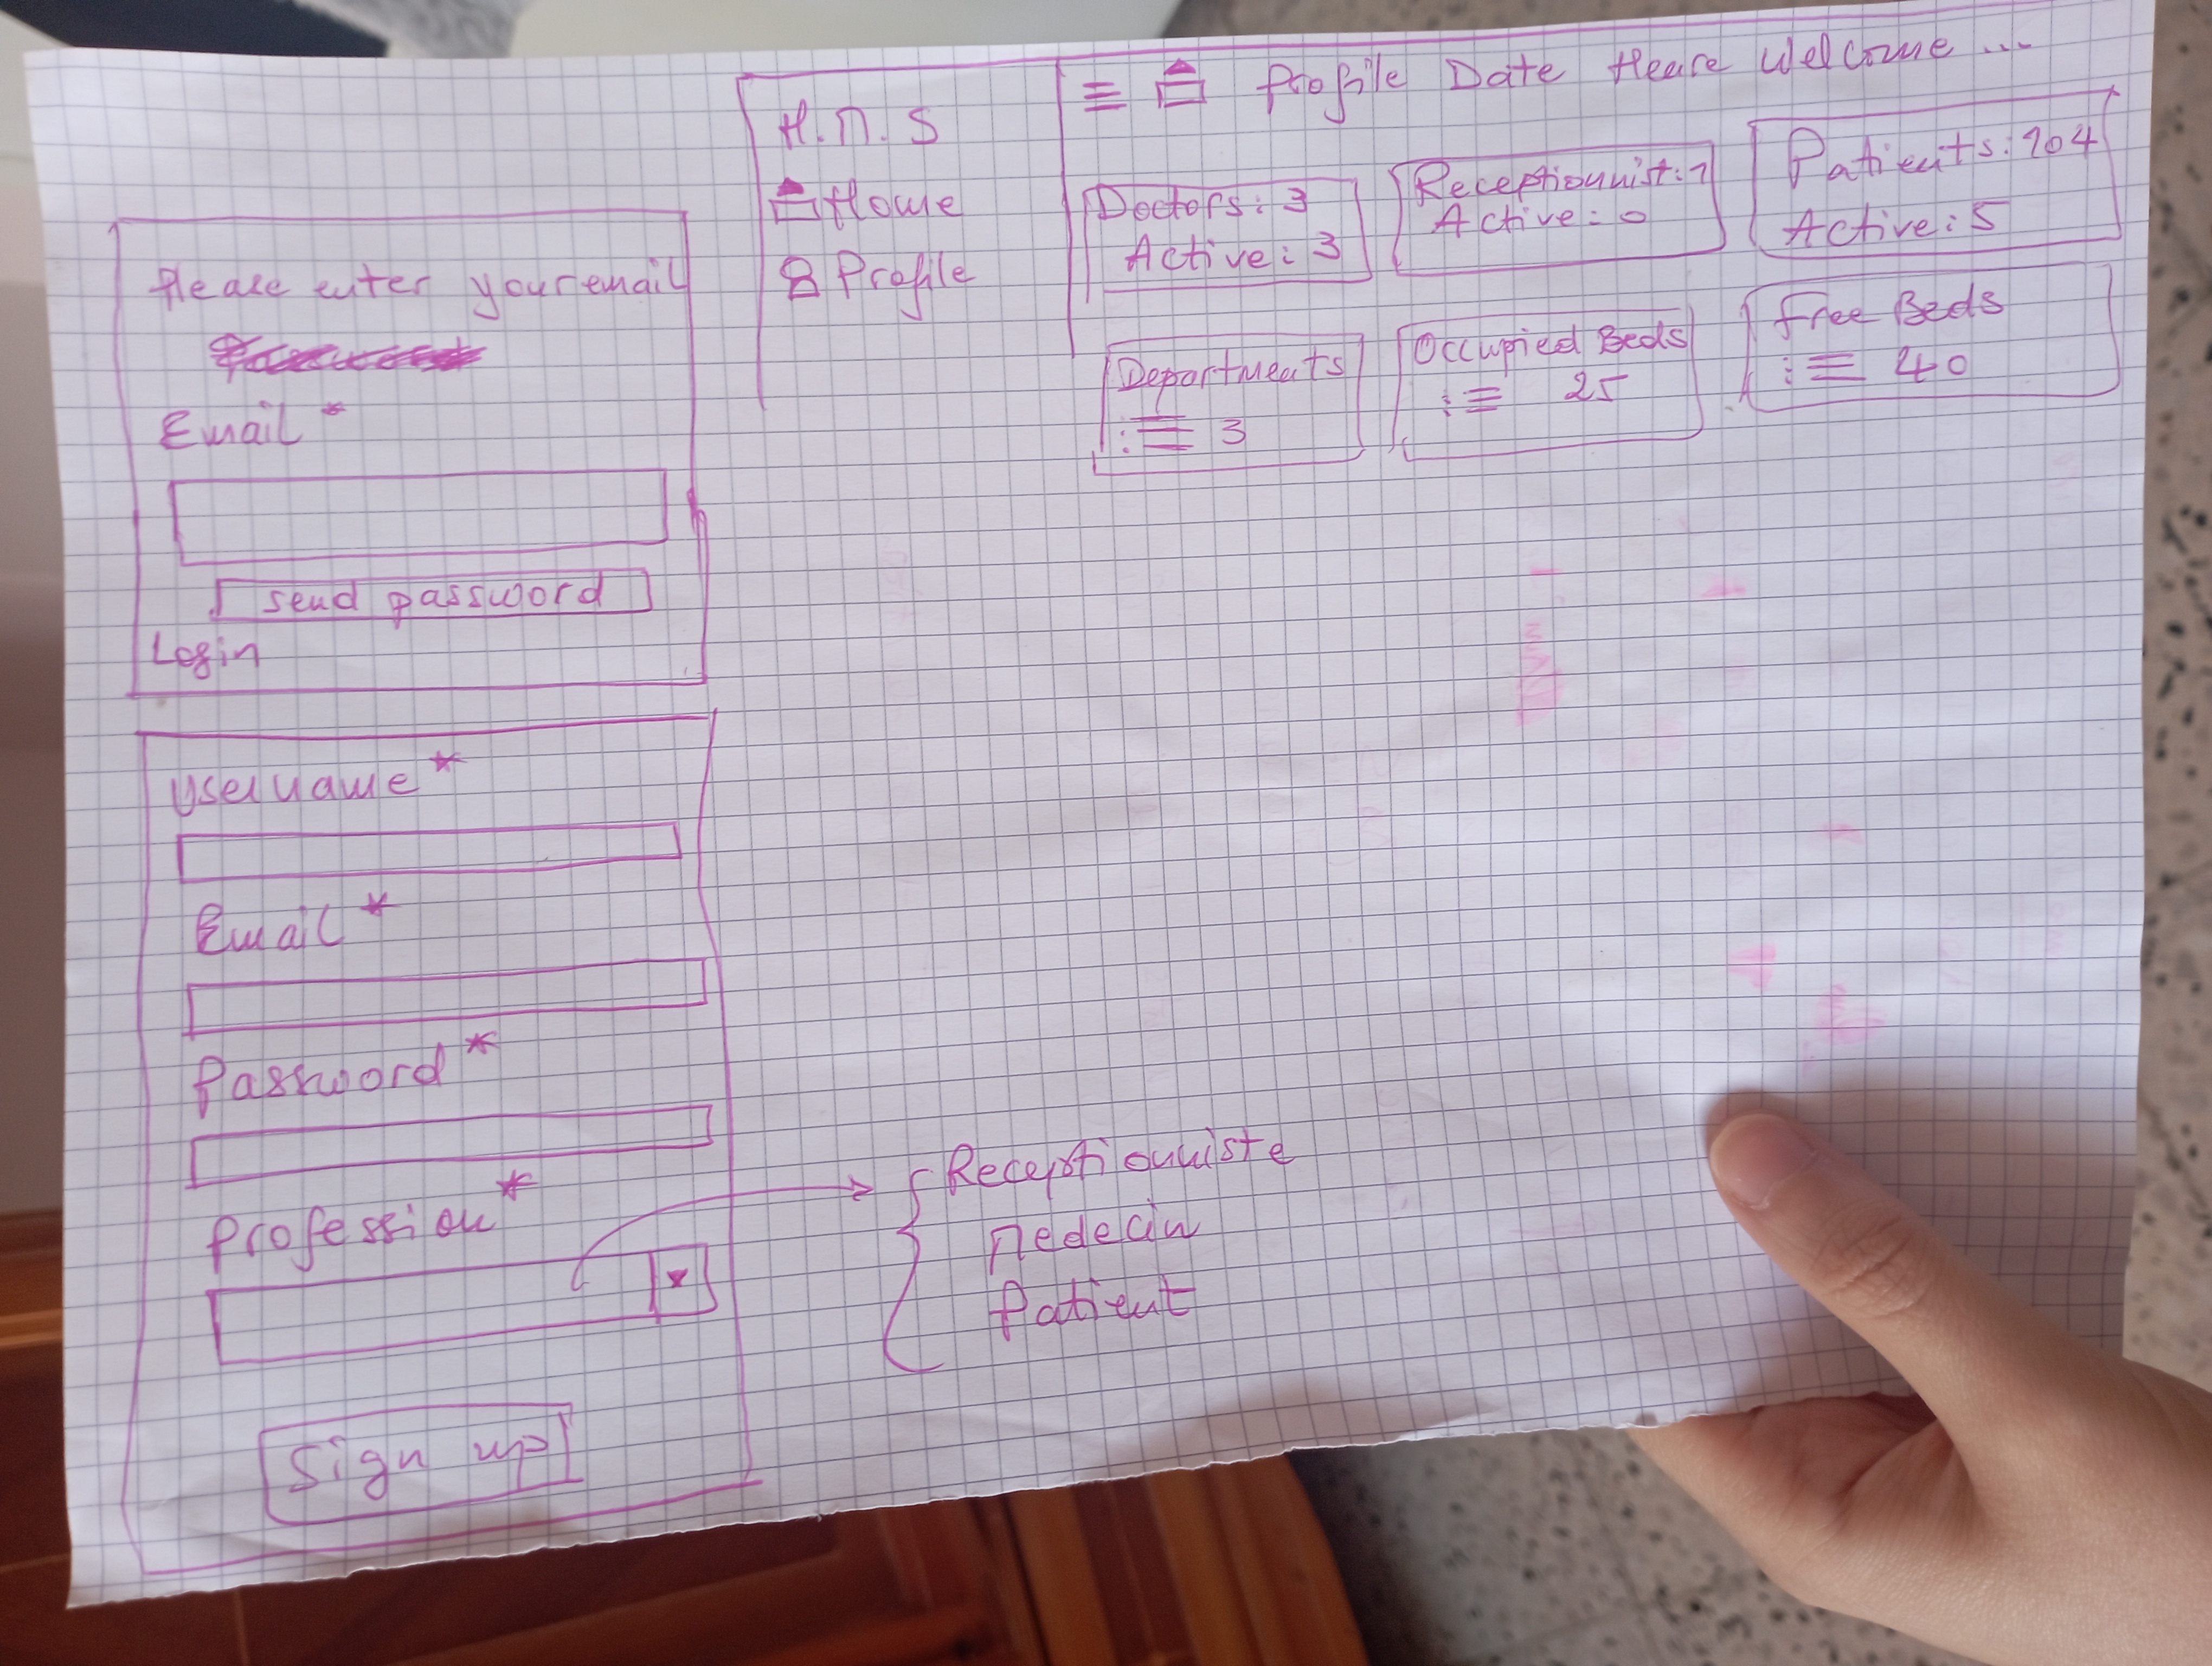 Please enter your email
Email *
send password
Login
Username *
Email *
Password *
Profession *
Sign up
Receptionniste
Medecin
Patient
H.M.S
Home
Profile
Profile Date Heure Welcome ...
Doctors: 3
Active: 3
Receptionnist: 1
Active: 0
Patients: 104
Active: 5
Departments
3
Occupied Beds
25
Free Beds
40